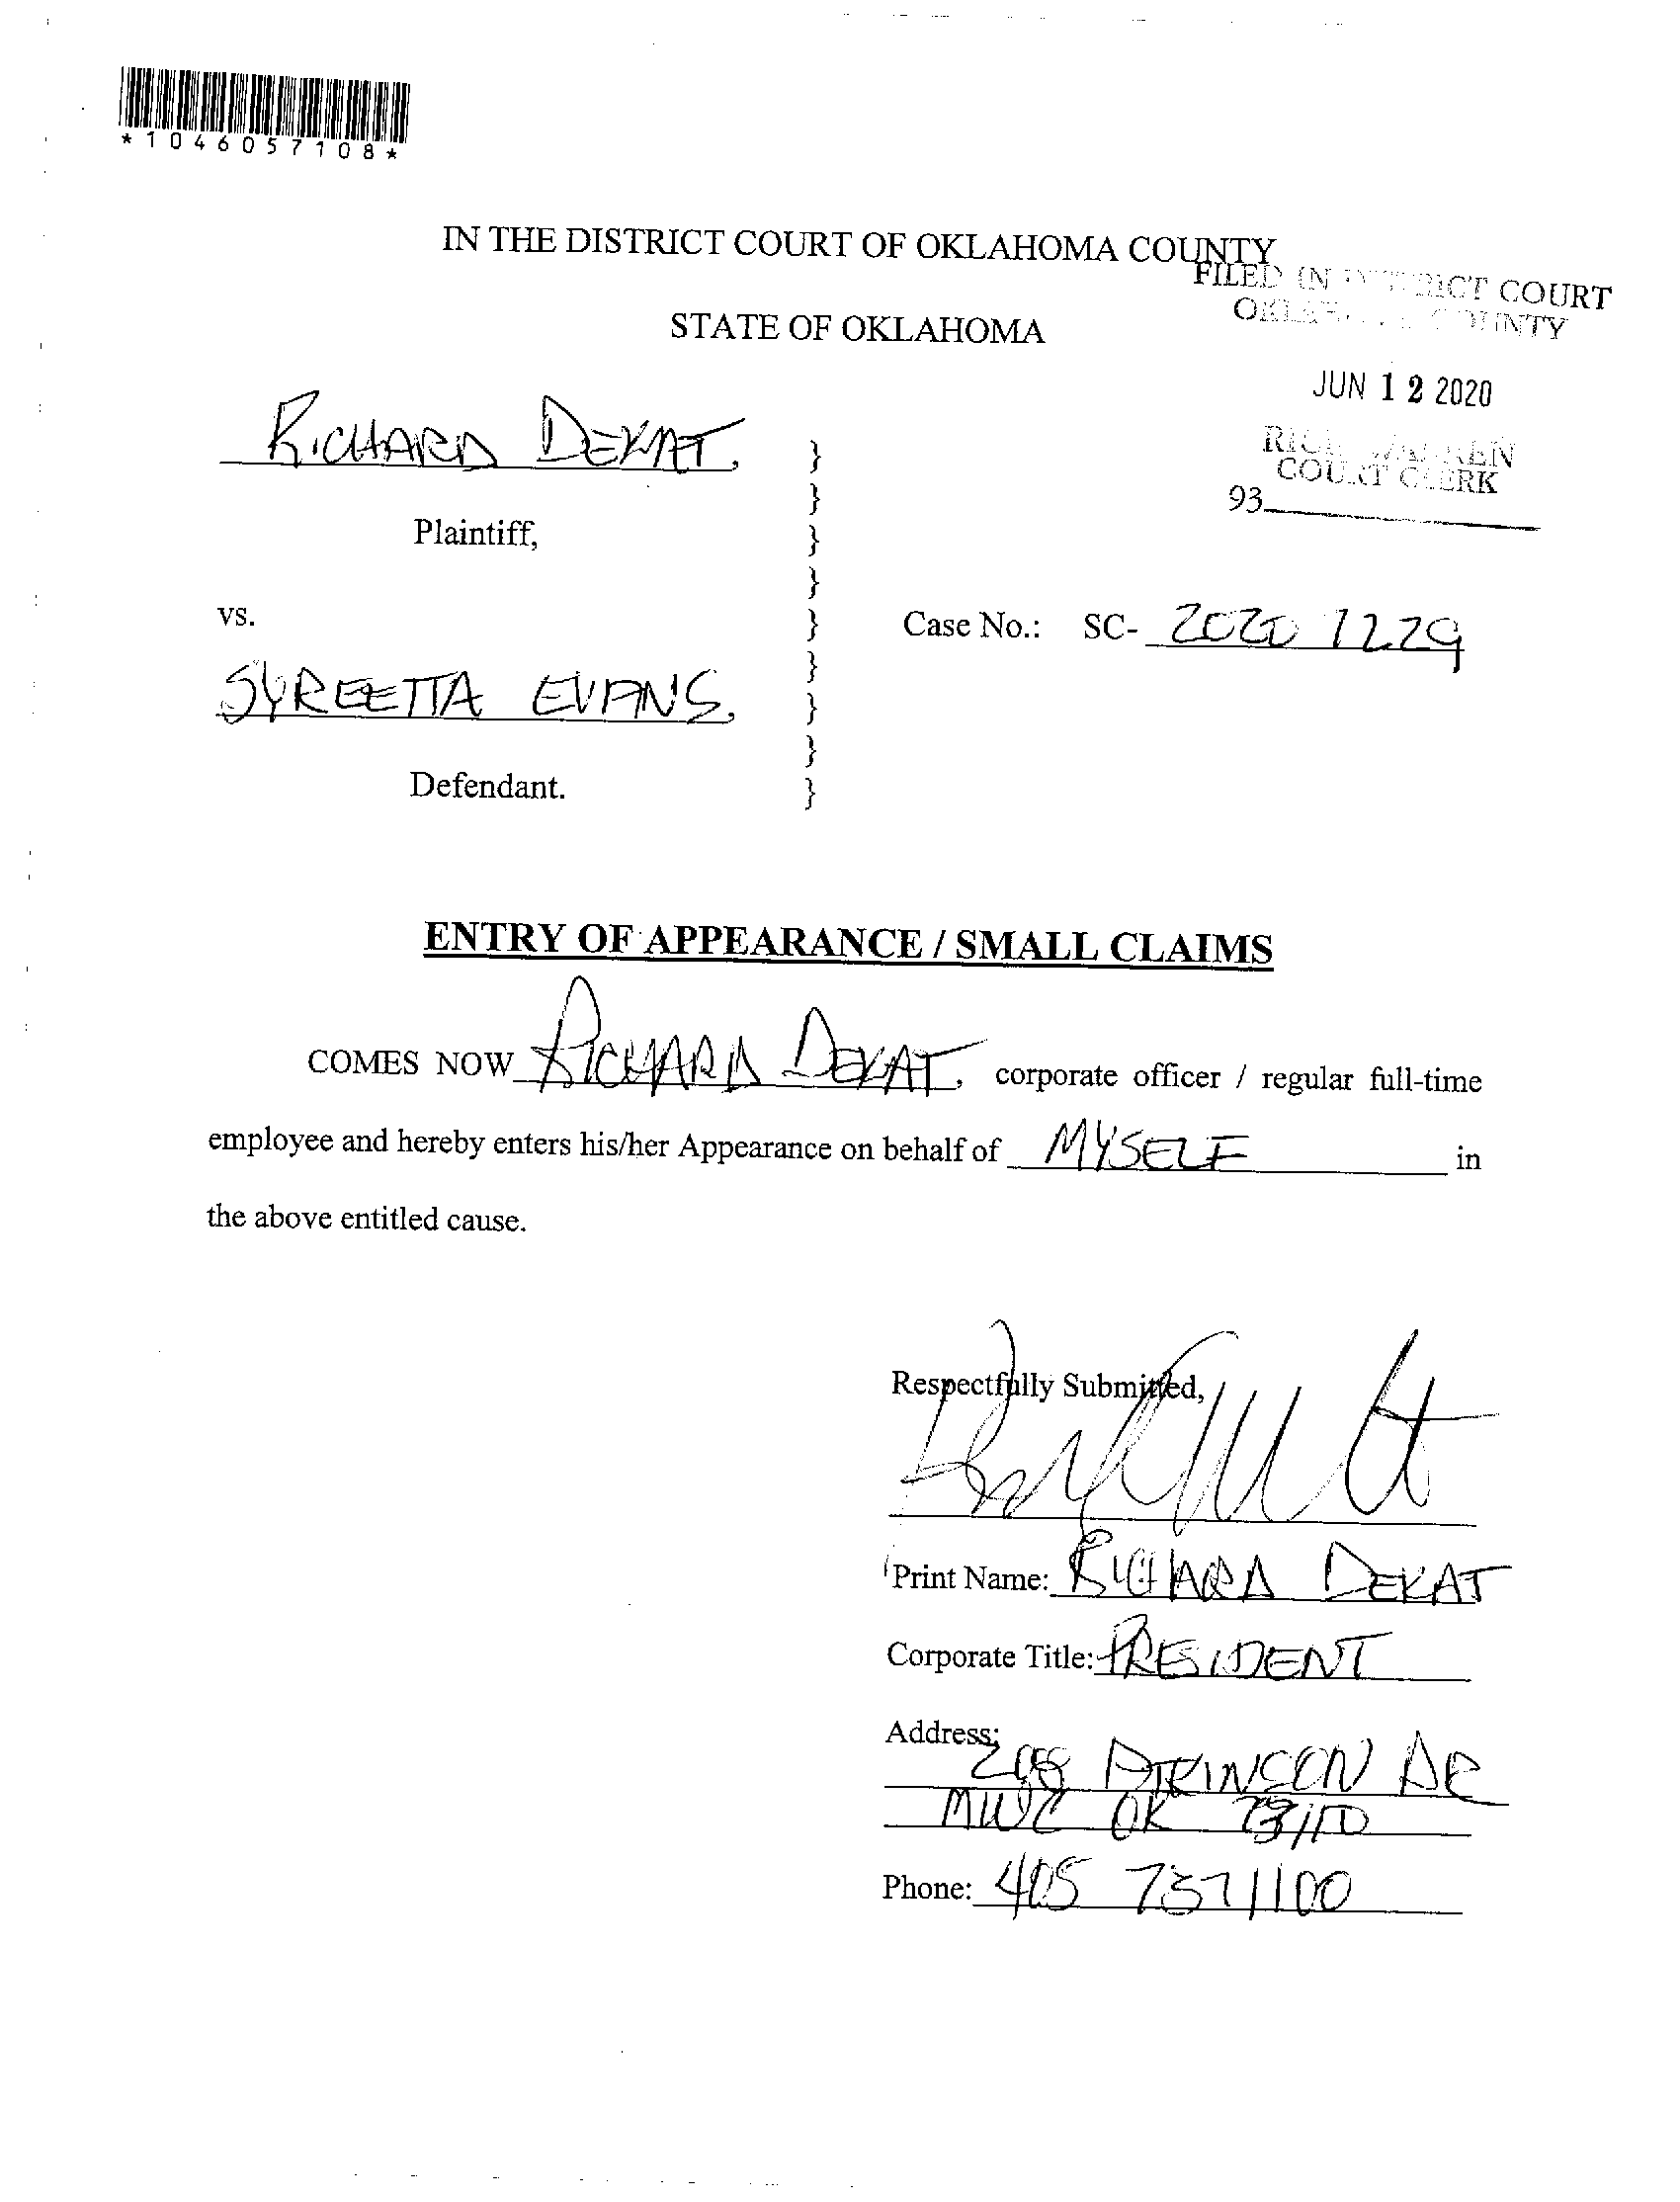 *1046057108*
IN THE DISTRICT COURT OF OKLAHOMA COUNTY
FILED IN DISTRICT COURT
OKLAHOMA COUNTY
STATE OF OKLAHOMA
JUN 12 2020
RICK WARREN
COURT CLERK
93
RICHARD DEKAT,
Plaintiff,
vs.
Case No.: SC- 2020 7229
SYREETTA EVANS,
Defendant.
ENTRY OF APPEARANCE / SMALL CLAIMS
COMES NOW RICHARD DEKAT, corporate officer / regular full-time
employee and hereby enters his/her Appearance on behalf of MYSELF in
the above entitled cause.
Respectfully Submitted,
Print Name: RICHARD DEKAT
Corporate Title: PRESIDENT
Address:
ATKINSON DR
MWC OK 73110
Phone: 405 7371100